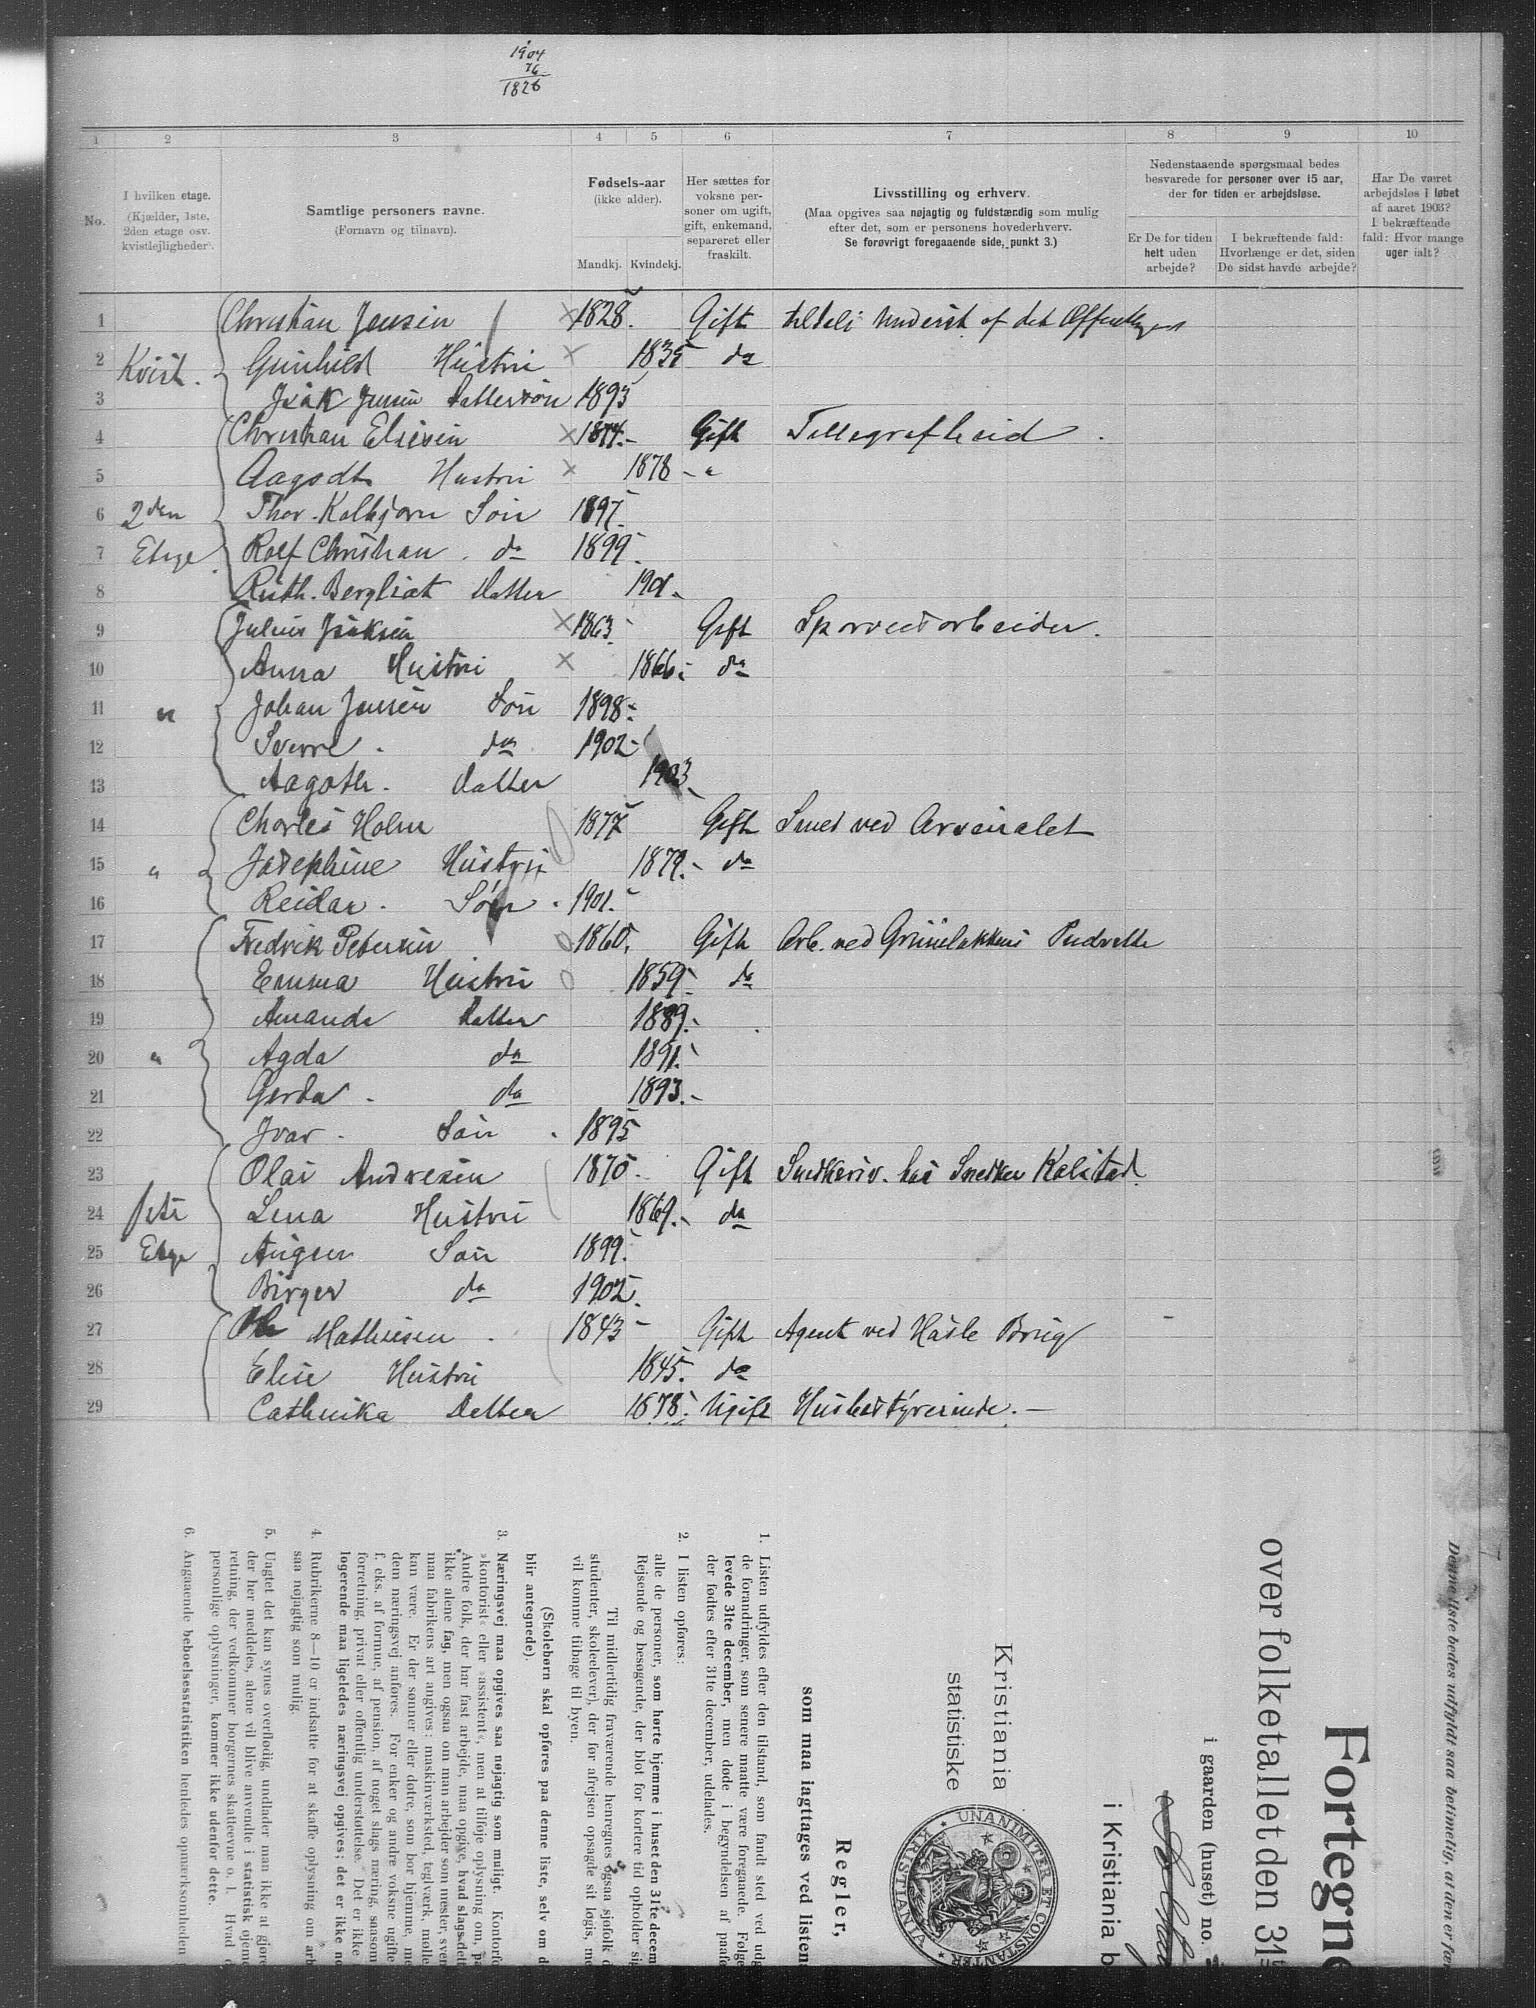 1904
76
1828
1 2 3 4 5 6 7 8 9 10
No.
I hvilken etage.
(Kjælder, 1ste,
2den etage osv.
kvistlejligheder).
Samtlige personers navne.
(Fornavn og tilnavn).
Fødsels-aar
(ikke alder).
Mandkj. Kvindekj.
Her sættes for
voksne per-
soner om ugift,
gift, enkemand,
separeret eller
fraskilt.
Livsstilling og erhverv.
(Maa opgives saa nøjagtig og fuldstændig som mulig
efter det, som er personens hovederhverv.
Se forøvrigt foregaaende side, punkt 3.)
Nedenstaaende spørgsmaal bedes
besvarede for personer over 15 aar,
der for tiden er arbejdsløse.
Er De for tiden
helt uden
arbejde?
I bekræftende fald:
Hvorlænge er det, siden
De sidst havde arbejde?
Har De været
arbejdsløs i løbet
af aaret 1903?
I bekræftende
fald: Hvor mange
uger ialt?
1 Christian Jensen × 1828. Gift af det Offentlige
2 Kvist. Gunhild Hustru × 1835 do
3 Isak Jensen Dattersøn 1893
4 Christian Elisen × 1874.- Gift
5 Aagodt Hustru × 1878 - "
6 2den Thor. Kolbjørn Søn 1897.
7 Etage. Rolf Christian. do 1899.
8 Ruth. Bergliot Datter 1901.
9 Julius Isaksen × 1863. Gift Sporveisarbeider.
10 Anna Hustru × 1866. do
11 " Johan Jensen Søn 1898.
12 Sverre. do 1902
13 Aagoth. Datter 1903
14 Charles Holm 1877 Gift Smed ved Arsenalet
15 " Josephine Hustru 1879.- do
16 Reidar. Søn. 1901.
17 Fredrik Petersen 1860. Gift Arb. ved Grüneløkkens Pudrette
18 Emma Hustru 1859. do
19 Amanda Datter 1889.
20 " Agda do 1891.
21 Gerda. do 1893.-
22 Ivar. Søn. 1895
23 Olai Andresen 1870. Gift Snedkersv. hos Snedker Kolstad.
24 1ste Lena Hustru 1869.- do
25 Etage Søn 1899.
26 Birger do 1902.
27 Ole Mathisen. 1843 - Gift Agent ved Hasle Brug
28 Elise Hustru 1845. do
29 Cathrika Datter 1878. Ugift Husbestyrerinde. -
Denne liste bedes udfyldt saa betimelig, at den er fær
Fortegne
over folketallet den 31t
i gaarden (huset) no.
i Kristiania b
Kristiania
statistiske
UNANIMITER ET CONSTANTER
KRISTIANIA
Regler,
som maa iagttages ved listens
1. Listen udfyldes efter den tilstand, som fandt sted ved udg
de forandringer, som senere maatte være foregaaede. Følge
levede 31te december, men døde i begyndelsen af paaføl
der fødtes efter 31te december, udelades.
2. I listen opføres:
alle de personer, som hørte hjemme i huset den 31te decem
Rejsende og besøgende, der blot for kortere tid opholder si
Til midlertidig fraværende henregnes ogsaa sjøfolk o
studenter, skoleelever), der før afrejsen opsagde sit logis, me
vil komme tilbage til byen.
(Skolebørn skal opføres paa denne liste, selv om d
blir antegnede).
3. Næringsvej maa opgives saa nøjagtig som muligt. Kontorfo
»kontorist« eller »assistent«, men at tilføje oplysning om, pa
Andre folk, der har fast arbejde, maa opgive, hvad slags det
ikke alene fag, men ogsaa om man arbejder som mester, sven
maa fabrikens art angives: maskinværksted, teglværk, mølle
kan være. Er der sønner eller døtre, som bor hjemme, me
dem næringsvej anføres. For enker og andre voksne ugifte
f. eks. af formue, af pension, af noget slags næring, saasom
forretning, privat eller offentlig understøttelse. Det er ikke
logerende maa ligeledes næringsvej opgives; det er ikke no
4. Rubrikerne 8—10 er indsatte for at skaffe oplysning om arb
saa nøjagtig som mulig.
5. Uagtet det kan synes overflødig, undlader man ikke at gjøre
der her meddeles, alene vil blive anvendte i statistisk øjeme
retning, der vedkommer borgernes skatteevne o. l. Hvad d
personlige oplysninger, kommer ikke udenfor dette.
6. Angaaende beboelsesstatistiken henledes opmærksomheden